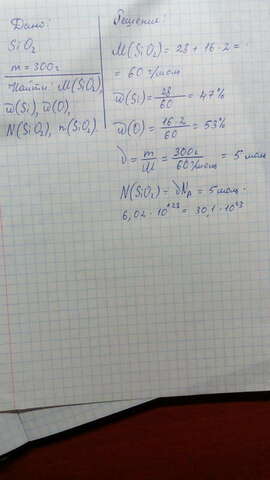 Дано:
SiO2
m = 300г
Найти: M(SiO2),
ω(Si), ω(O),
N(SiO2), n(SiO2)
Решение:
M(SiO2) = 28 + 16 · 2 =
= 60 г/моль
ω(Si) = 28/60 = 47%
ω(O) = 16·2/60 = 53%
ν = m/M = 300г/60г/моль = 5 моль
N(SiO2) = νNA = 5 моль ·
6,02 · 10^23 = 30,1 · 10^23